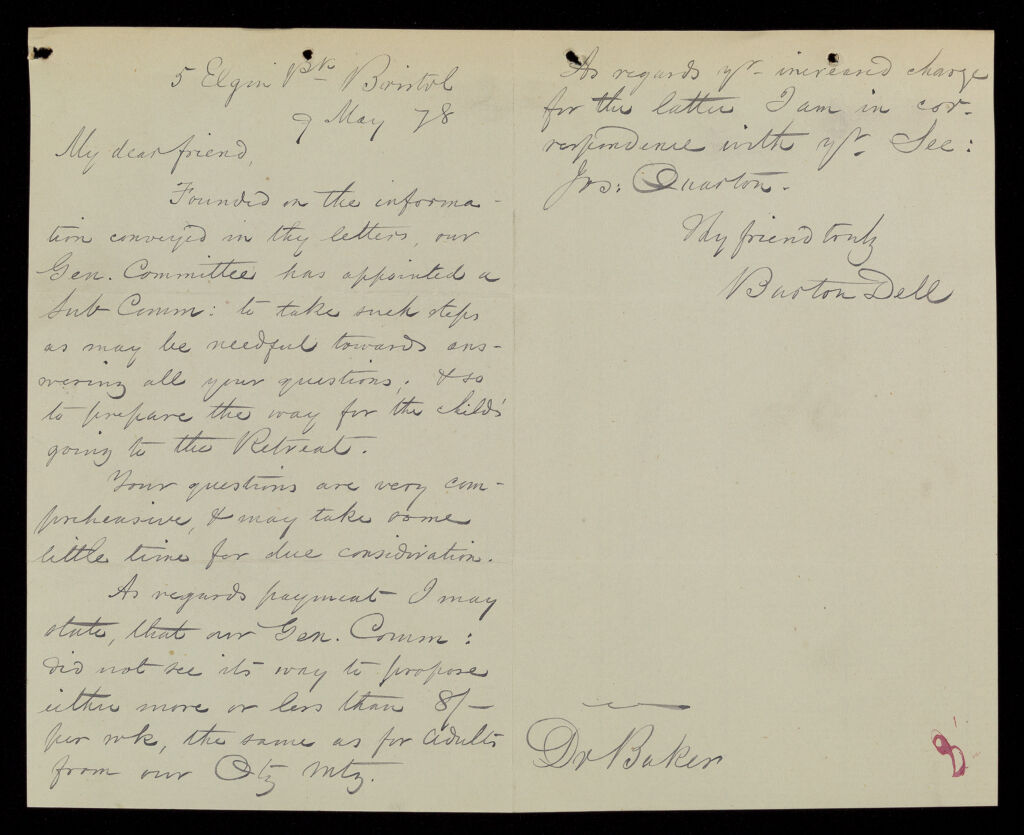 5 Elgin Pk Bristol
9 May 78
My dear friend,
Founded on the informa-
tion conveyed in thy letters, our
Gen. Committee has appointed a
Sub Comm: to take such steps
as may be needful towards ans-
wering all your questions; & so
to prepare the way for the child's
going to the Retreat.
Your questions are very com-
prehensive, & may take some
little time for due consideration.
As regards payment I may
state, that our Gen. Comm:
did not see its way to propose
either more or less than 8/-
per wk, the same as for adults
from our Qty Mtg.
As regards yr increased charge
for the latter I am in cor-
respondence with yr Sec:
Jos: Quarton.
Thy friend truly
Barton Dell
Dr Baker